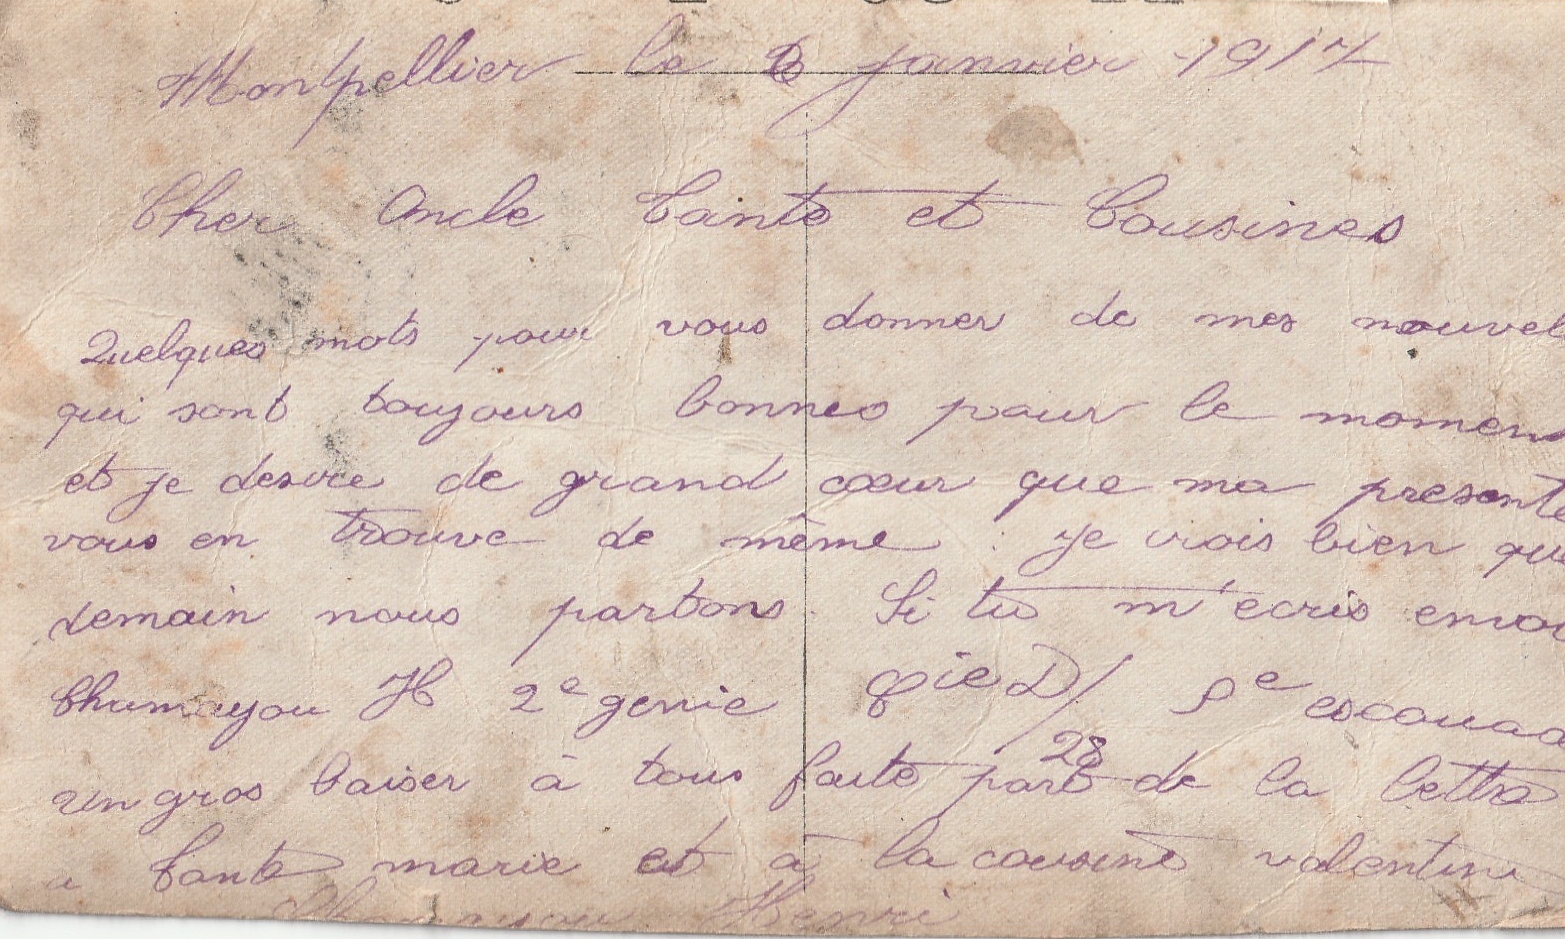 Montpellier le janvier 1917
Cher Oncle Tante et Cousines
Quelques mots pour vous donner de mes nouvel
qui sont toujours bonnes pour le momen
et je desire de grand cœur que ma presente
vous en trouve de même. je crois bien que
demain nous partons. Si tu m'ecris envoi
Chumayou H 2e genie Cie D/28 escouad
un gros baiser à tous faite part de la lettre
a Tante marie et à la cousine valentin
Chumayou Henri